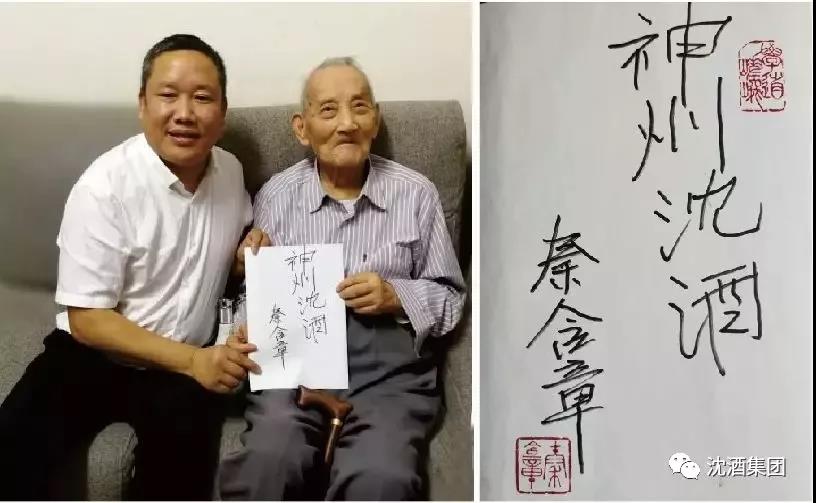 神州沈酒
秦含章
神州沈酒
秦含章
秦含章
沈酒集团